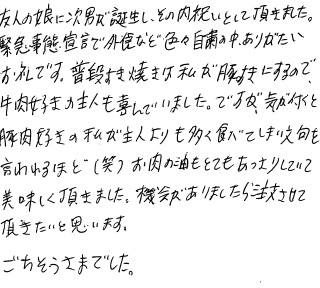 友人の娘に次男が誕生し、その内祝いとして頂きました。
緊急事態宣言で外食など色々自粛の中、ありがたい
お礼です。普段すき焼きは私が豚すきにするので、
牛肉好きの主人も喜んでいました。ですが、気が付くと
豚肉好きの私が主人よりも多く食べてしまい文句を
言われるほど(笑)お肉の油もとてもあっさりしていて
美味しく頂きました。機会がありましたら注文させて
頂きたいと思います。
ごちそうさまでした。